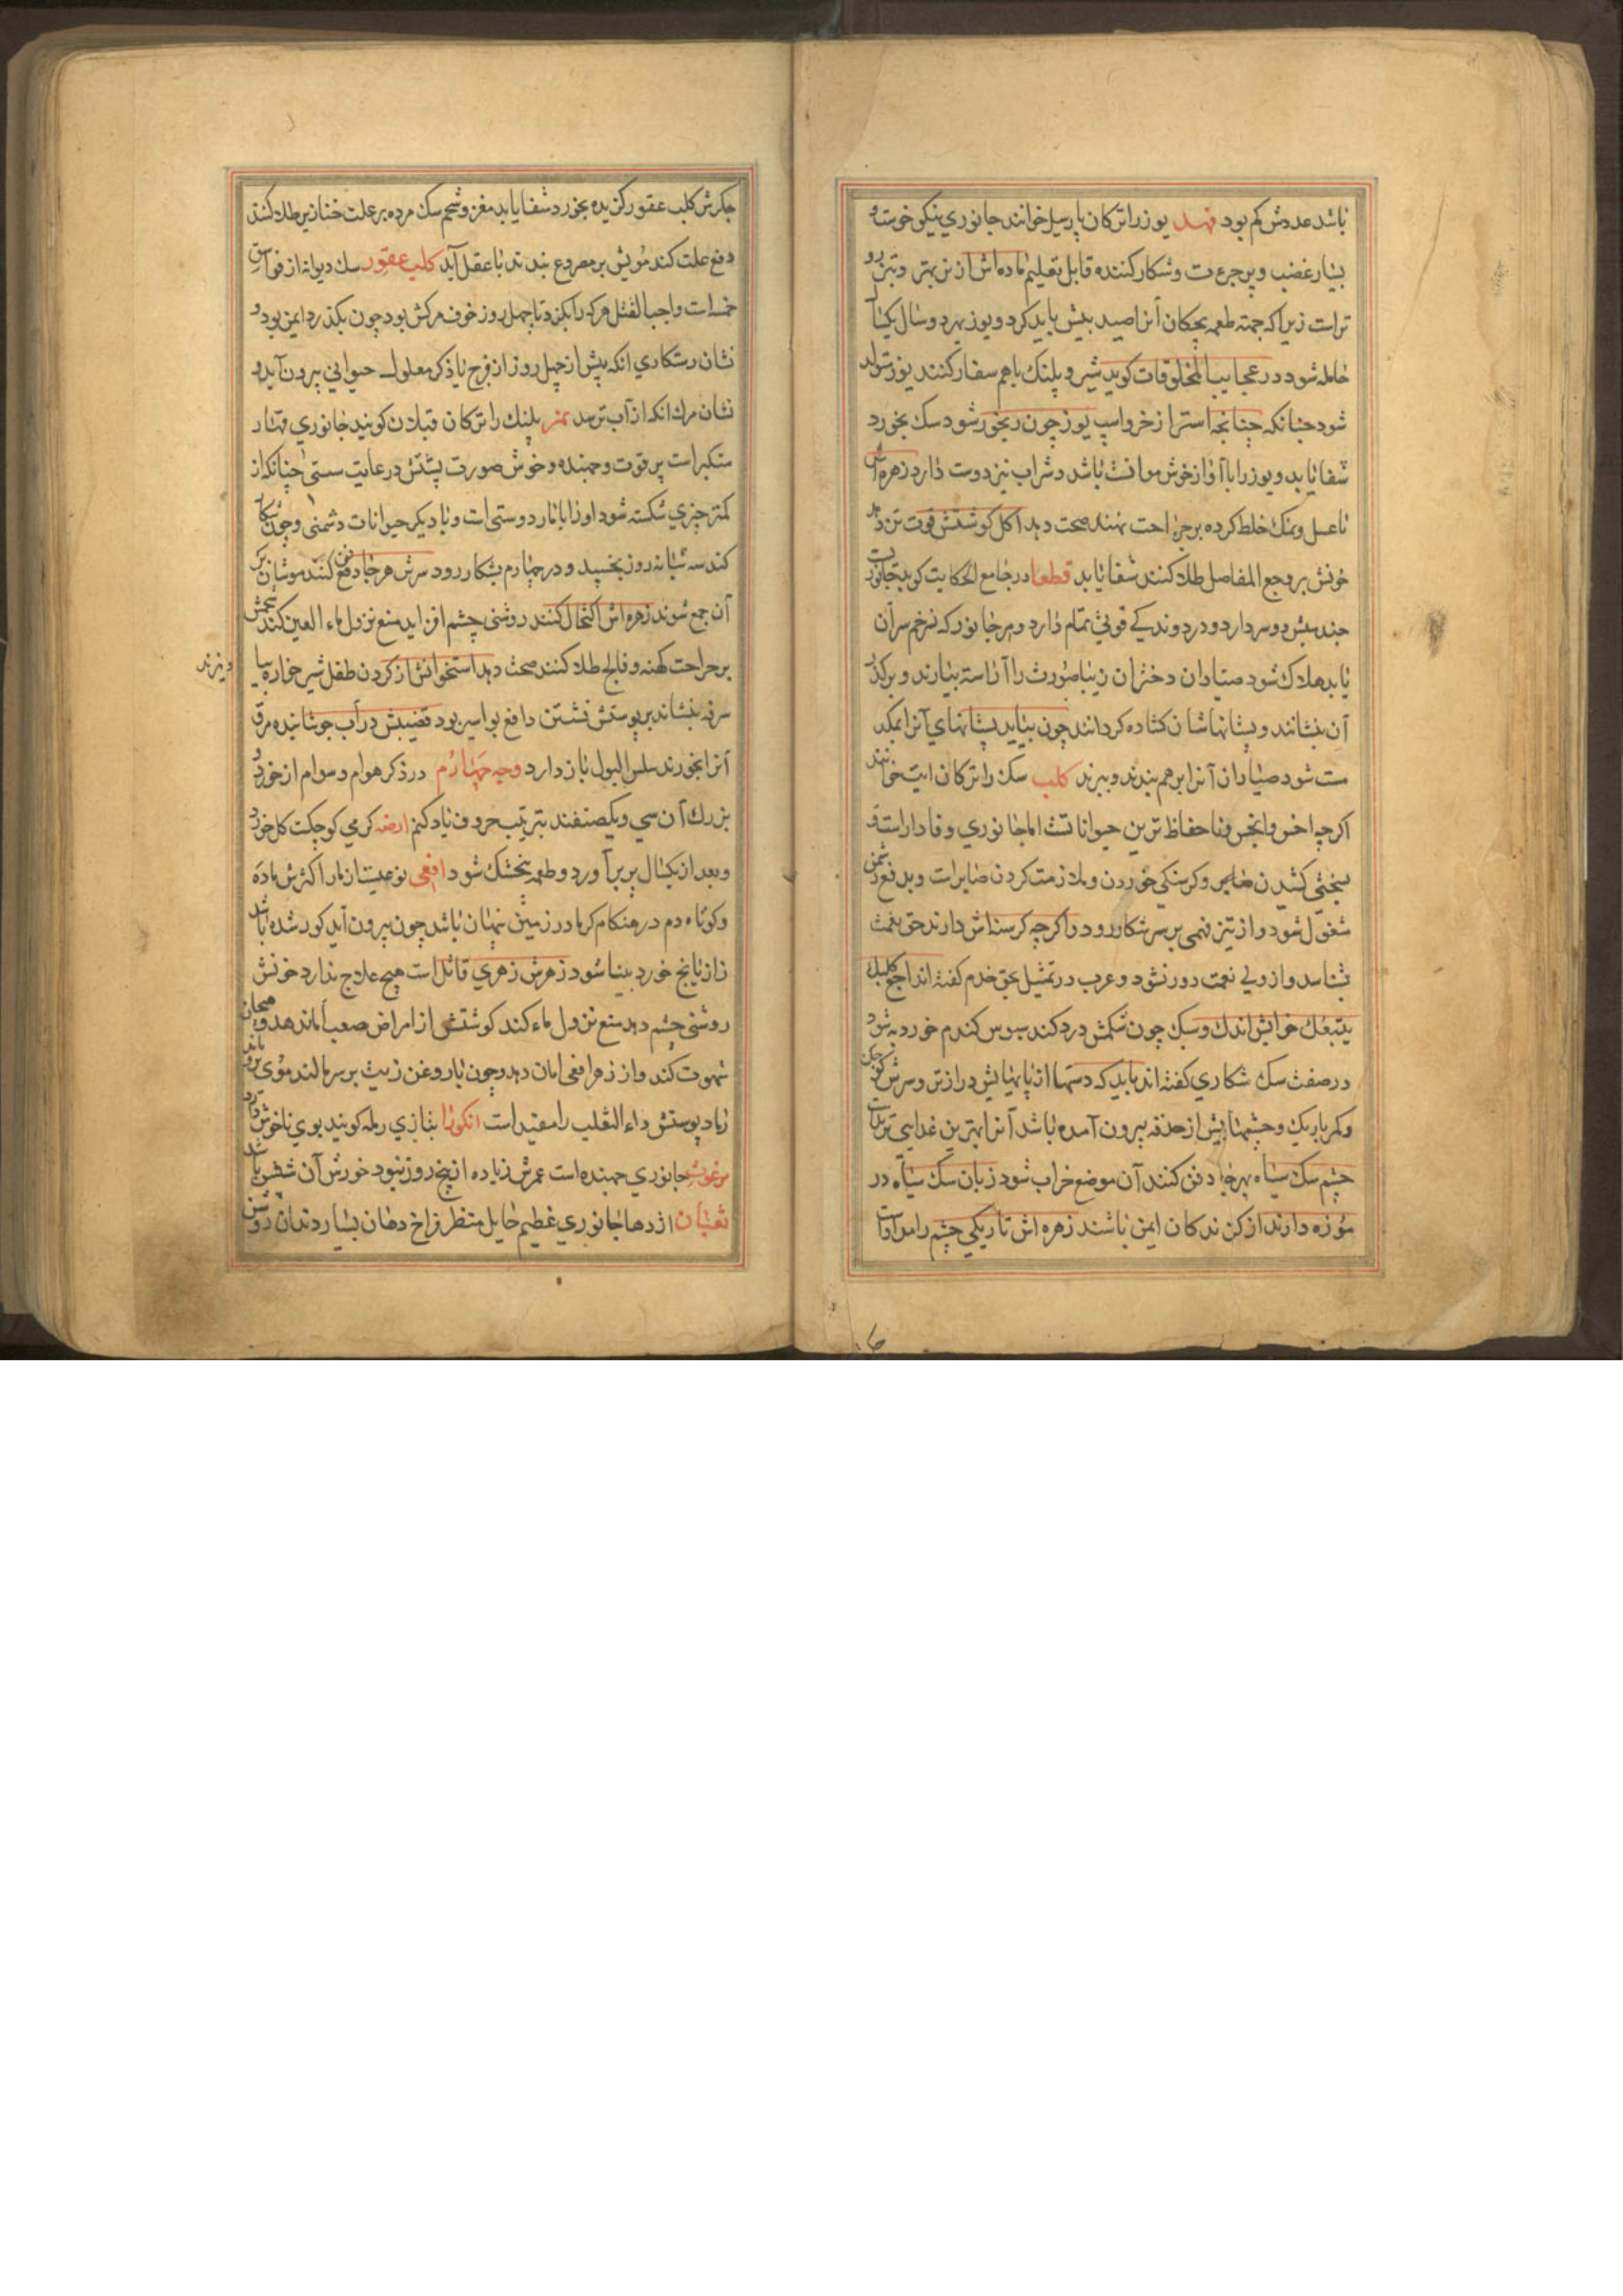 باشد عددش کم بود فهد یوز را ترکان پارسیل خوانند جانوری نیکو خوست و
بسیار غضب و پرجرءت و شکار کننده قابل تعلیم ماده اش از نر بهتر و تیزرو
تر است زیرا که جهته طعمه بچکان آنرا صید بیش باید کرد و یوز بهر دو سال یکبار
حامله شود در عجایب المخلوقات کوید شیر و پلنک باهم سفاد کنند یوز تولد
شود چنانکه استر از خر و اسپ یوز چون رنجور شود سک بخورد
شفا یابد و یوز را با آواز خوش موانست باشد و شراب نیز دوست دارد زهره اش
با عسل و نمک خلط کرده بر جراحت نهند صحت دهد اکل کوشتش قوت تن دهد
خونش بر وجع المفاصل طلا کنند شفا یابد قطعا در جامع الحکایت کوید جانوریست
دو سر دارد و در دوندکی قوتی تمام دارد و هر جانور که زخم سر آن
یابد هلاک شود صیادان دختران زیبا صورت را آراسته بیارند و بر کذر
آن بنشانند و پستانهاشان کشاده کردانند چون بیاید پستانهای آنرا بمکد
مست شود صیادان آنرا برهم بندند و ببرند کلب سک را ترکان ایت خوانند
اکرچه اخس و انجس و ناحفاظ ترین حیواناتست اما جانوری وفادار است و
بسختی کشیدن و کرسنکی خوردن و ملازمت کردن صابر است و بدفع دشمن
مشغول شود و از تیز فهمی بر سر شکار رود و اکرچه کرسنه اش دارند حق نعمت
شناسد و از ولی نعمت دور نشود و عرب در تمثیل بحق خدم کفته اند اجع کلبک
یتبعک خوابش اندک و سبک چون شکمش درد کند سبوس کندم خورد به شود
در صفت سک شکاری کفته اند باید که دستها از پایهایش درازتر و سرش کوچک
و کمر باریک و چشمها پیش از حدقه بیرون آمده باشد آنرا بهترین غذایی تریدست
چشم سک سیاه بهر جا دفن کنند آن موضع خراب شود زبان سک سیاه در
موزه دارند از کزندکان ایمن باشند زهره اش تاریکی چشم را مداواست
جکرش کلب عقور کزیده بخورد شفا یابد مغز و شحم سک مرده بر علت خنازیر طلا کنند
دفع علت کند مویش بر مصروع بندند با عقل آید کلب عقور سک دیوانه از فواسق
خمسه است واجب القتل هرکه را بکزد تا چهل روز خوف مرکش بود چون بکذرد ایمن بود و
نشان رستکاری آنکه پیش از چهل روز از فرج یا ذکر معلول حیوانی بیرون آید و
نشان مرک آنکه از آب ترسد نمر پلنک را ترکان قبلان کویند جانوری قهار
متکبر است پر قوت و جهنده و خوش صورت پشتش در غایت سستی چنانکه از
کمتر چیزی شکسته شود او را با مار دوستی است و با دیکر حیوانات دشمنی و چون شکار
کند سه شبانه روز بخسپد و در چهارم بشکار رود سرش هر جا دفن کنند موشان بر
آن جمع شوند زهره اش اکتحال کنند روشنی چشم افزاید منع نزول ماء العین کند شحمش
بر جراحت کهنه و فالج طلا کنند صحت دهد استخوانش از کردن طفل شیرخواره بیا
ویزند
سرفه بنشاند بر پوستش نشستن دافع بواسیر بود قضیبش در آب جوشانیده مرق
آنرا بخورند سلس البول باز دارد وجه چهارم در ذکر هوام و سوام از خورد و
بزرک آن سی و یک صنفند بترتیب حروف یاد کنم ارضه کرمی کوچکست کل خورد
و بعد از یکسال پر بر آورد و طعمه بنجشک شود افعی نوعیست از مار اکثرش ماده
و کوتاه دم در هنکام کرما در زمین نهان باشد چون بیرون آید کور شده باشد
رازیانج خورد بینا شود زهرش زهری قاتل است هیچ علاج ندارد خونش
روشنی چشم دهد منع نزول ماء کند کوشتش از امراض صعب امان دهد و هیجان
شهوت کند و از زهر افعی امان دهد و چون با روغن زیت بر سر مالند موی برویاند
پوستش داء الثعلب را مفید است انکورا بتازی رمله کویند بوی ناخوش دارد
برغوث جانوری جهنده است عمرش زیاده از پنج روز نبود خورش آن شفس باشد
ثعبان اژدها جانوری عظیم هایل منظر فراخ دهان بسیار دندان روشن